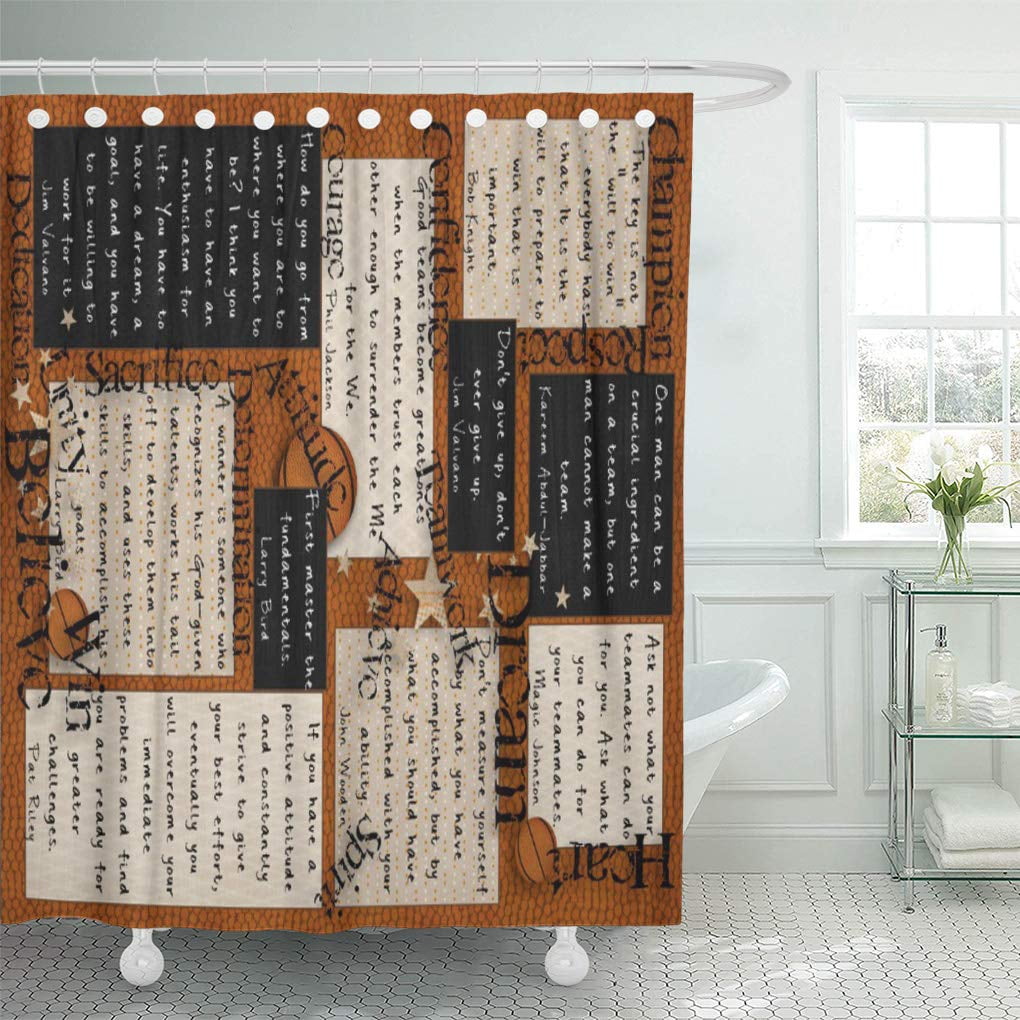 Champion
The key is not
the "will to win"
everybody has
that. It is the
will to prepare to
win that is
important.
Bob Knight
Respect
One man can be a
crucial ingredient
on a team, but one
man cannot make a
team.
Kareem Abdul-Jabbar
Ask not what your
teammates can do
for you. Ask what
you can do for
your teammates
Magic Johnson
Heart
Confidence
Good teams become great ones
when the members trust each
other enough to surrender the Me
for the We.
Phil Jackson
Don't give up, don't
ever give up.
Jim Valvano
Teamwork
Dream
Courage
Achieve
Don't measure yourself
by what you have
accomplished, but by
what you should have
accomplished with your
ability.
John Wooden
Spirit
How do you go from
where you are to
where you want to
be? I think you
have to have an
enthusiasm for
life. You have to
have a dream, a
goal, and you have
to be willing to
work for it
Jim Valvano
Attitude
First master the
fundamentals.
Larry Bird
Sacrifice
Determination
A winner is someone who
recognizes his God-given
talents, works his tail
off to develop them into
skills, and uses these
skills to accomplish his
goals
Larry Bird
If you have a
positive attitude
and constantly
strive to give
your best effort,
eventually you
will overcome your
immediate
problems and find
you are ready for
greater
challenges.
Pat Riley
Win
Dedication
Unity
Believe